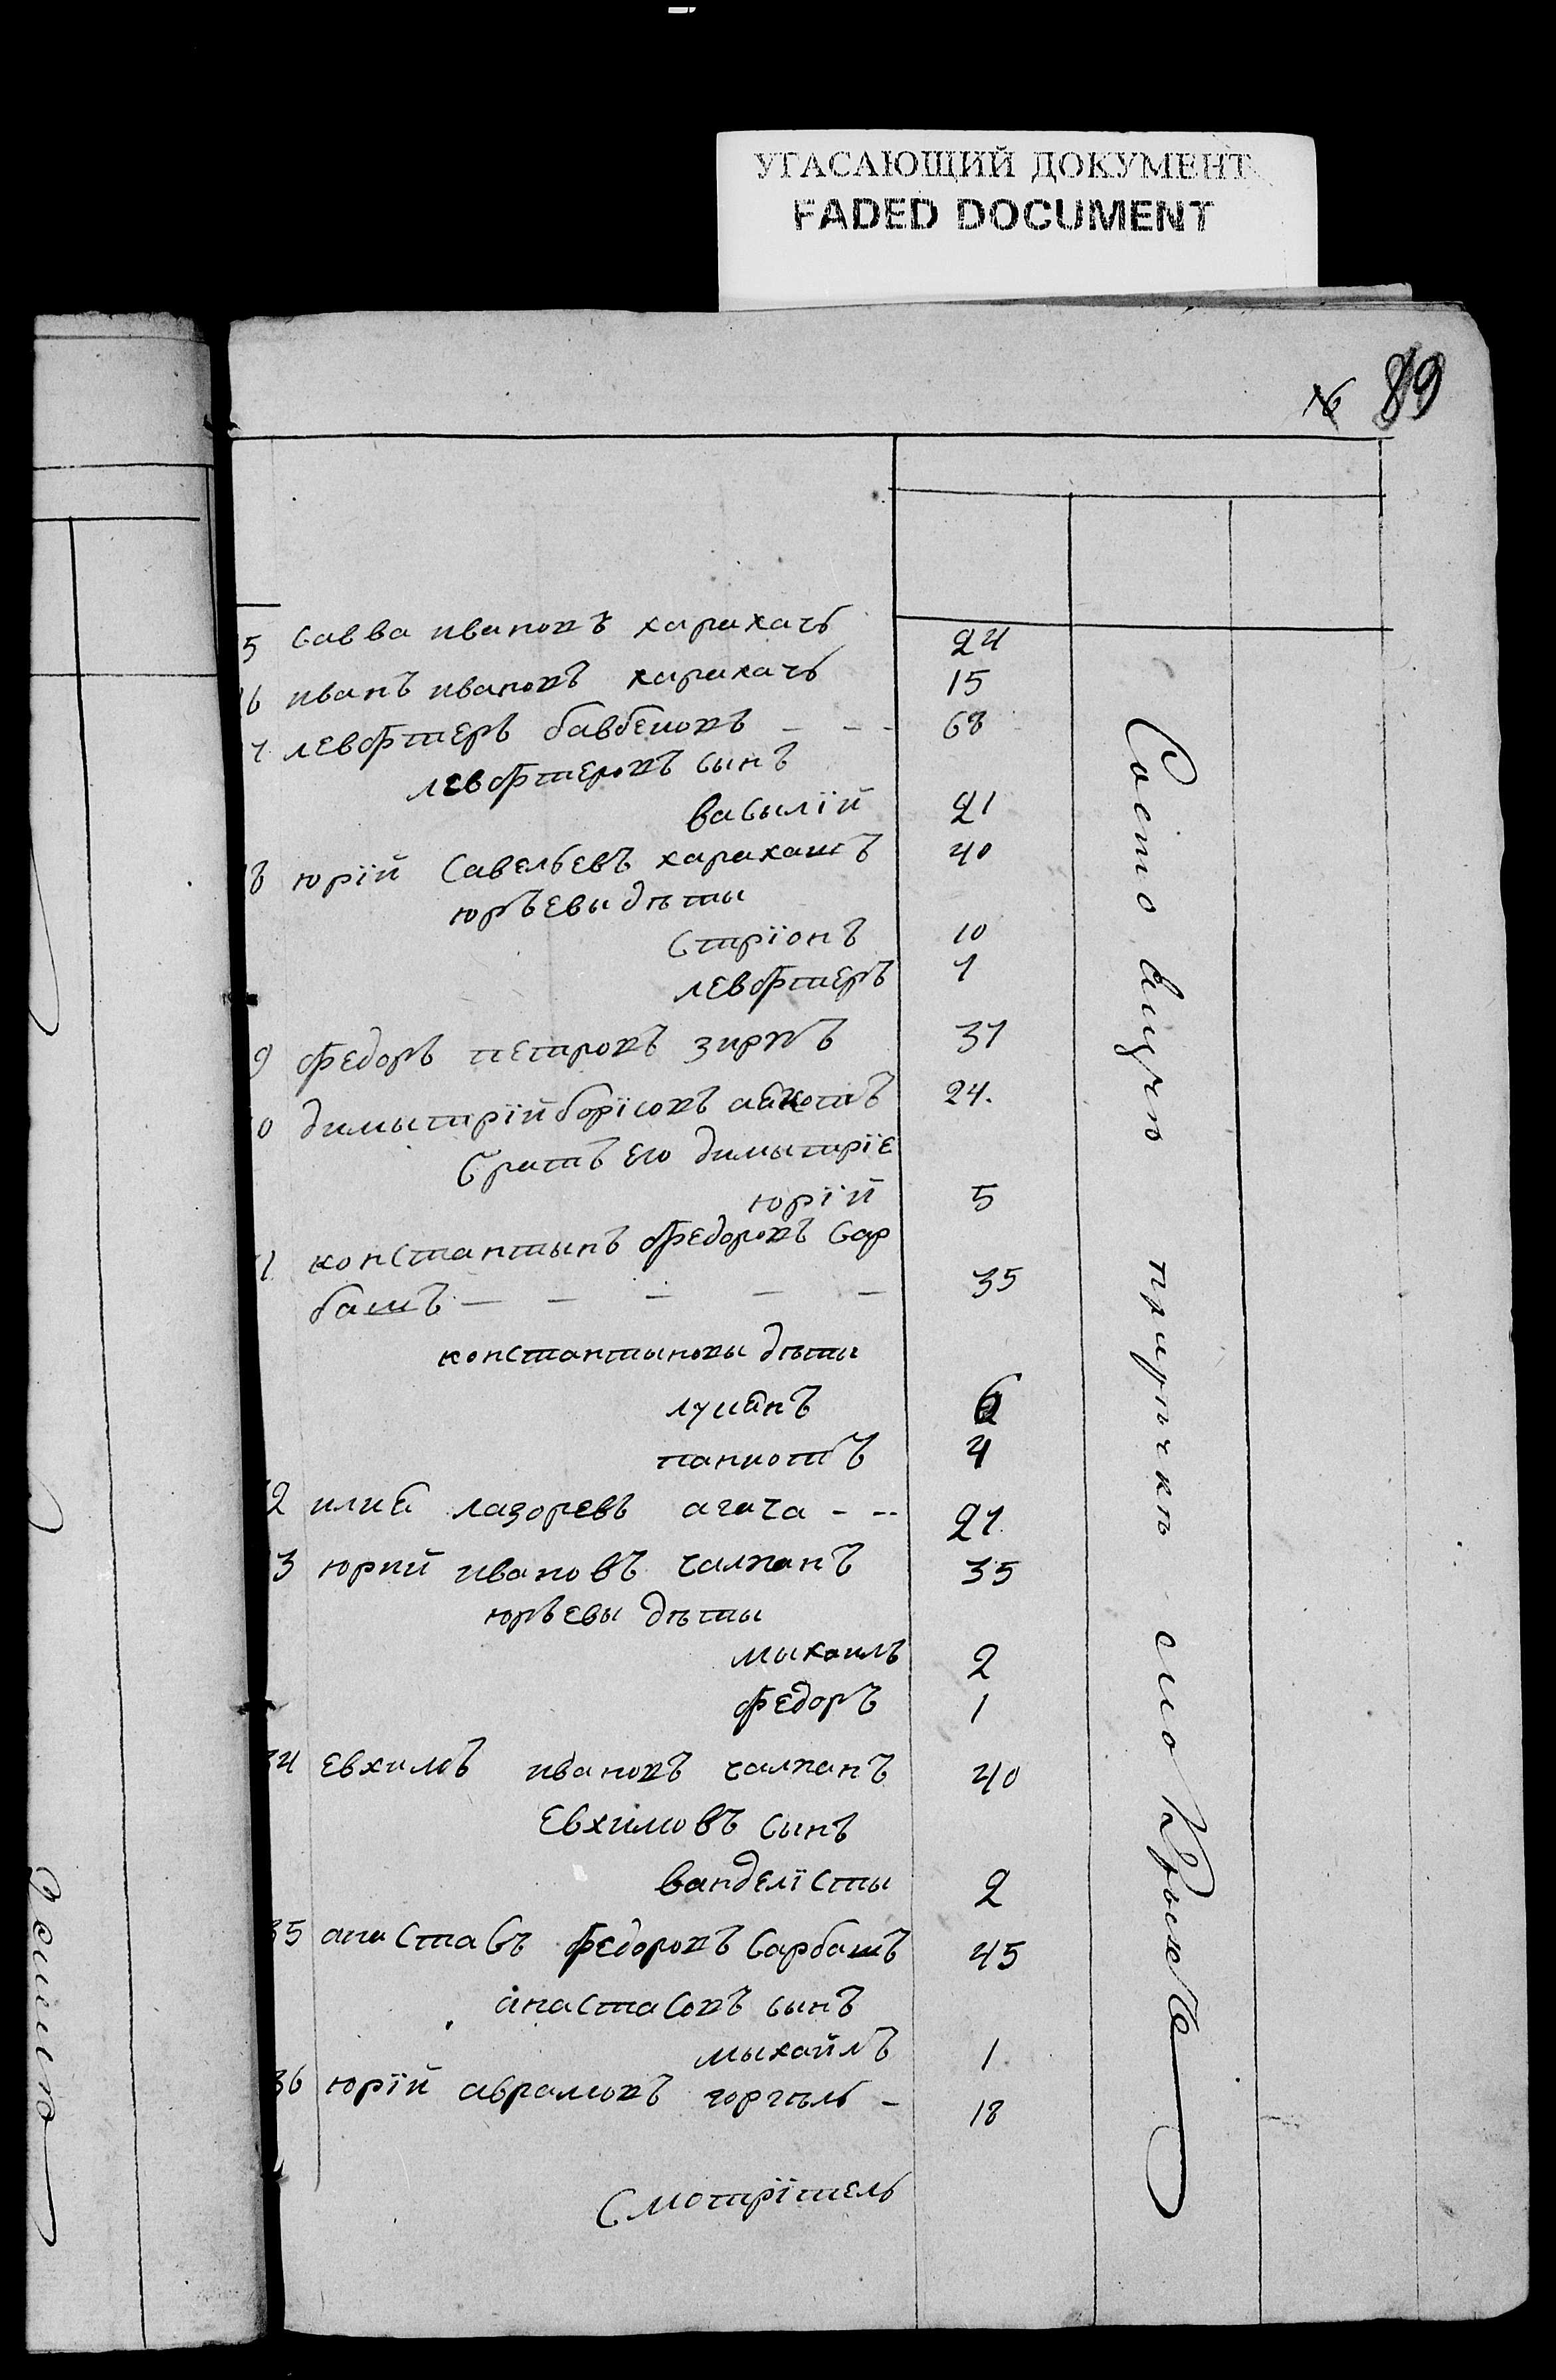 УГАСАЮЩИЙ ДОКУМЕНТ
FADED DOCUMENT
89
5 Савва ивановъ каракачь 24
6 иванъ ивановъ каракачь 15
7 левфтеръ бавбековъ - - - 68
левфтеровъ сынъ
васылїй 21
8 юрїй Савельевъ каракашъ 40
юръевы дѣты
Стрїонъ 10
левфтеръ 7
9 федоръ петровъ 37
0 димытрїй борїсовъ 24.
братъ его димытрїе
юрїй 5
1 константынъ федоровъ Сар
башъ - - - - - 35
константыновы дѣты
6
паниотъ 4
2 илиа лазоревъ агача - -- 27
3 юрий ивановъ чалпанъ 35
юръевы дѣты
мыхаилъ 2
федоръ 1
34 евхимъ ивановъ чалпанъ 40
Евхимовъ сынъ
ванделїсты 2
35 анаставъ федоровъ Сарбашъ 45
анастасовъ сынъ
мыхайлъ 1
36 юрїй аврамовъ - 18
Смотрїтель